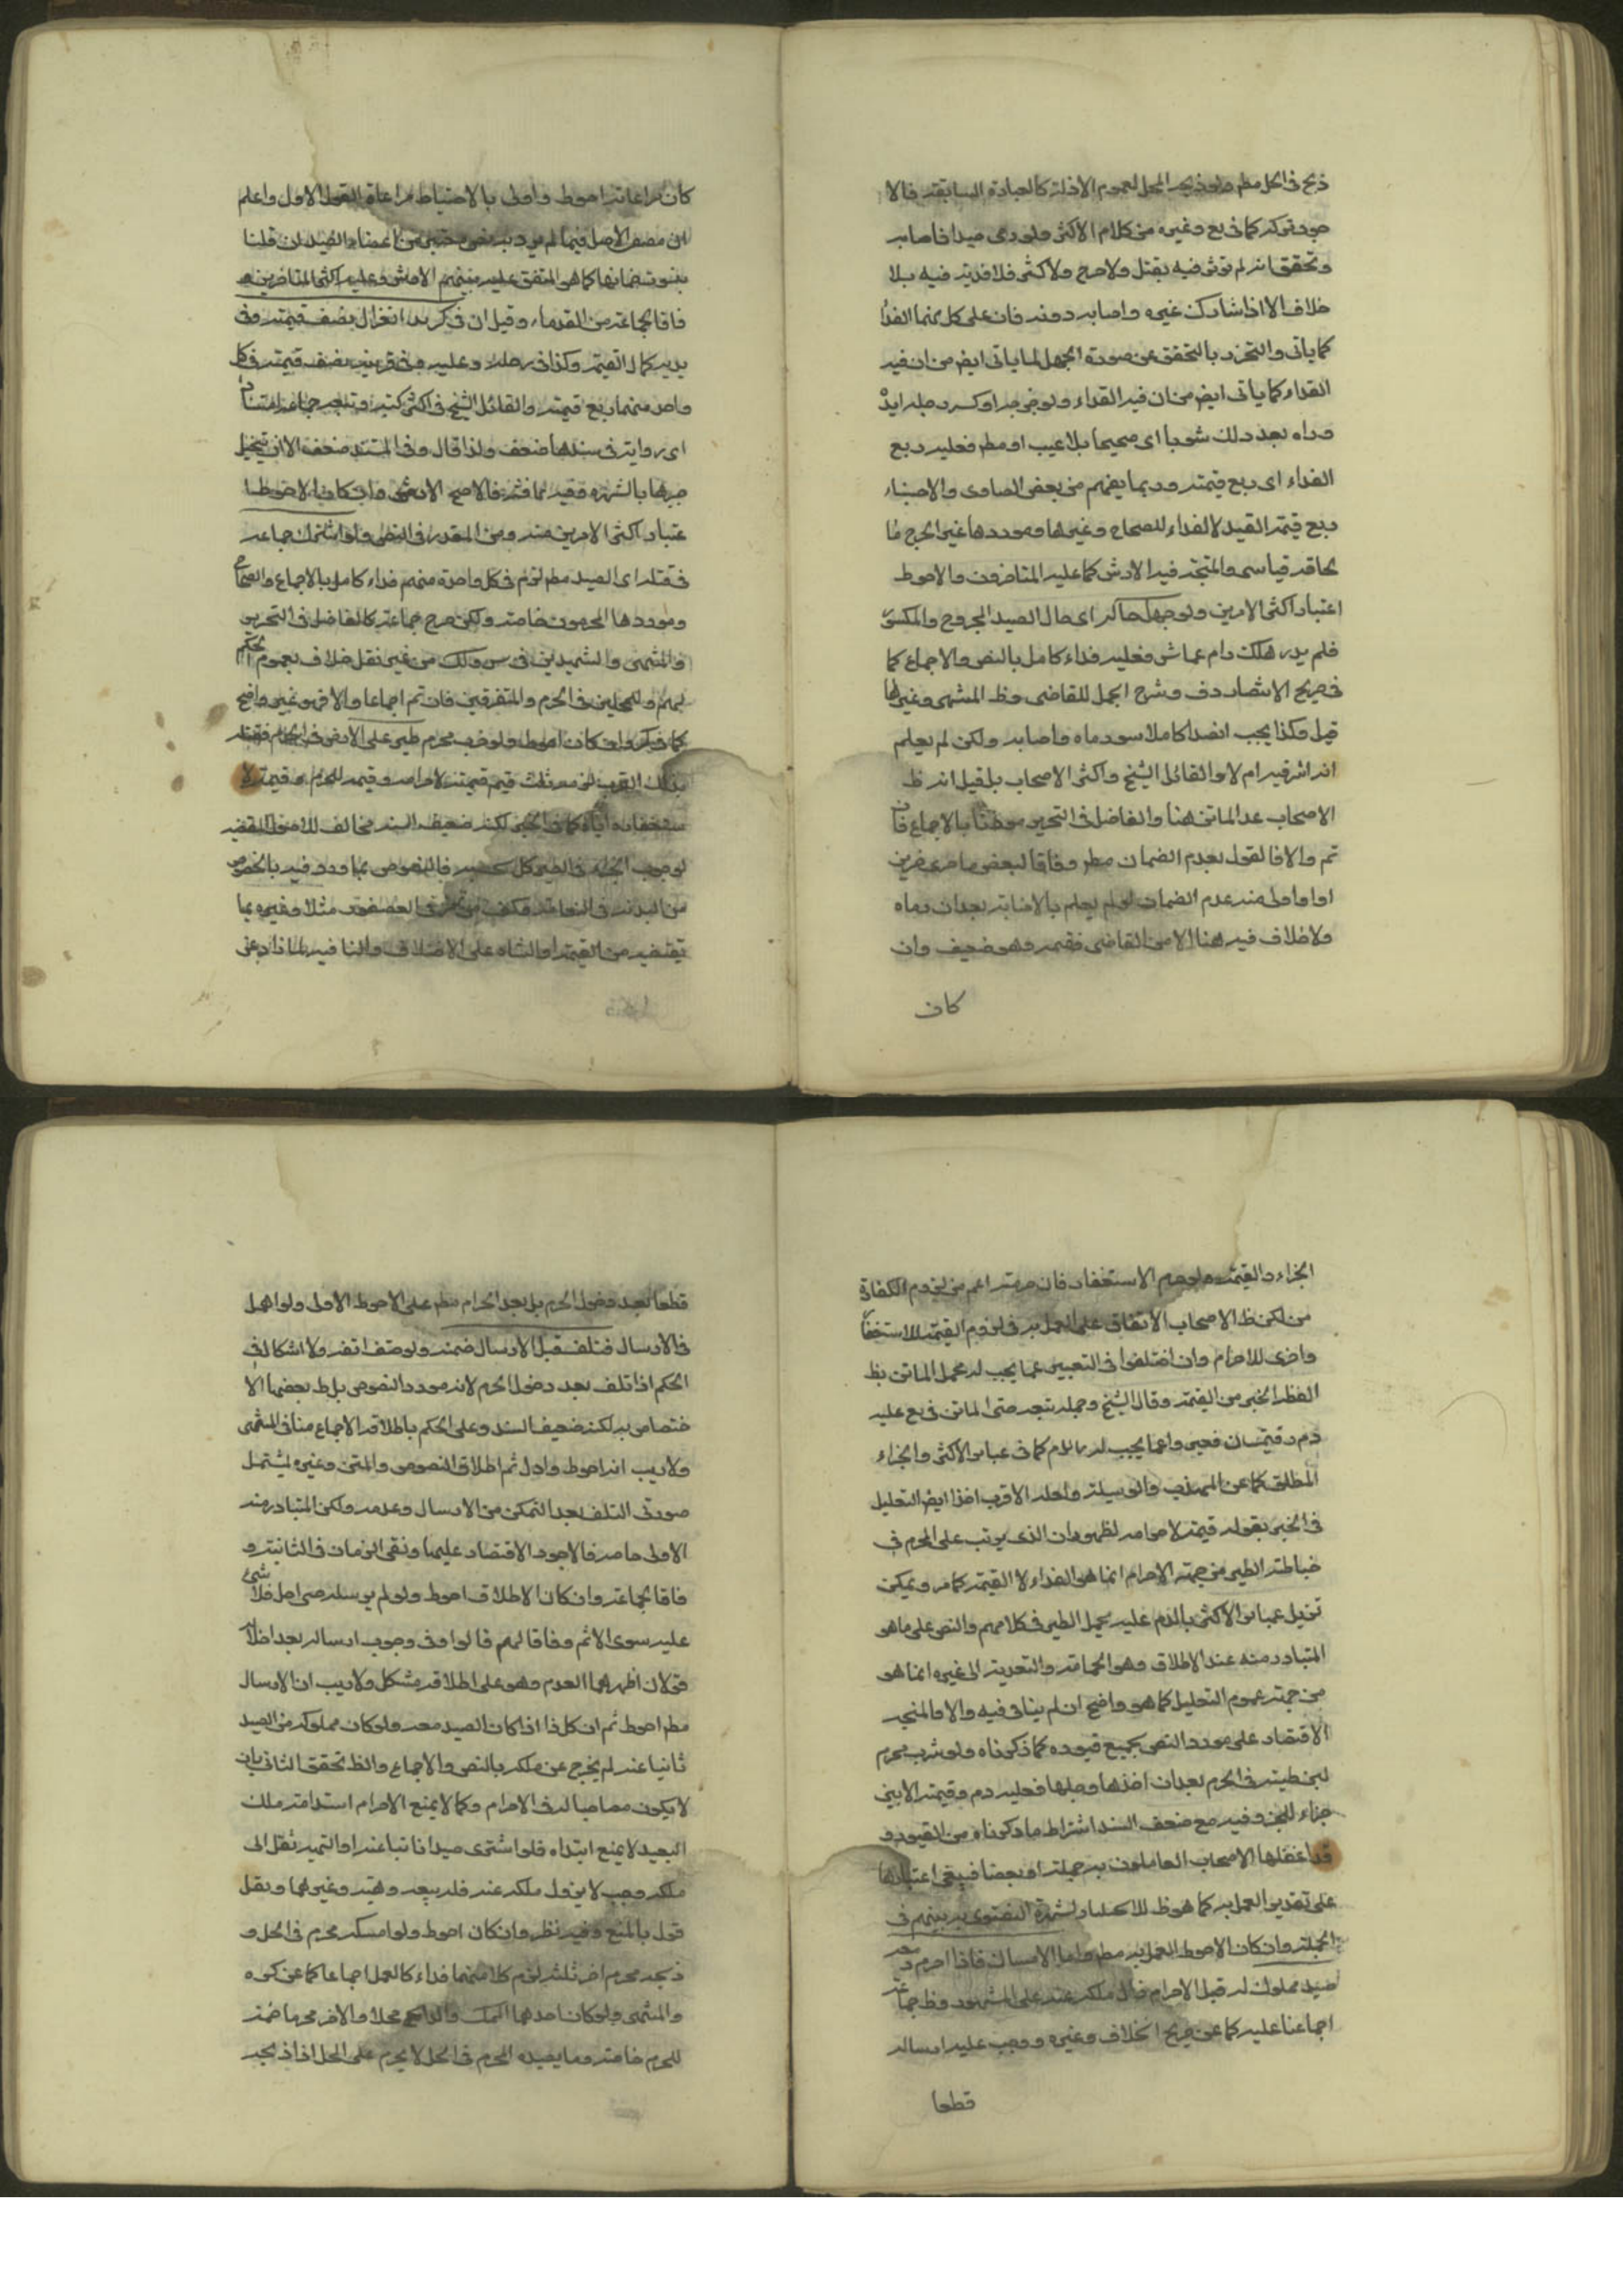 ذبح فى الحل مطم ولو ذبحه المحل لعموم الادلة كالعبارة السابقة فالا
جود تركه كما فى يع وغيره من كلام الاكثر ولو رمى صيدا فاصابه
وتحقق انه لم توثر فيه بقتل ولا جرح ولا كسر فلا فدية فيه بلا
خلاف الا اذا شارك غيره واصابه دونه فان على كل منهما الفدا
كما ياتى والتحرز بالتحقق عن صورة الجهل لما ياتى ايض من ان فيه
الفداء كما ياتى ايض من ان فيه الفداء ولو جرحه او كسر رجله او يده
وراه بعد ذلك سويا اى صحيحا بلا عيب او مطم فعليه ربع
الفداء اى ربع قيمته وربما يفهم من بعض الفتاوى والاخبار
ربع قيمة الصيد لا الفداء للصحاح وغيرها وموردها غير الجرح فا
لحاقه قياس والمتجه فيه الارش كما عليه المتاخرون والاحوط
اعتبار اكثر الامرين ولو جهل حاله اى حال الصيد المجروح والمكسور
فلم يدر هلك دام عاش فعليه فداء كامل بالنص والاجماع كما
فى صريح الانتصار وف وشرح الجمل للقاضى وظ المنتهى وغيرها
قيل وكذا يجب الفداء كاملا لو رماه واصابه ولكن لم يعلم
انه اثر فيه ام لا والقائل الشيخ واكثر الاصحاب بل قيل انه ظ
الاصحاب عد الماتن هنا والفاضل فى التحرير موطنا بالاجماع فان
تم والا فالقول بعدم الضمان مطر وفاقا لبعض متاخرى متاخرين
اوا واولى منه عدم الضمان لو لم يعلم بالاصابة بعد ان رماه
ولا خلاف فيه هنا الا من القاضى فقيمه وهو ضعيف وان
كان
كان مراعاته احوط واولى بالاحتياط مراعاة القول الاول واعلم
ان مقتضى الاصل فيما لم يرد به نص من اعضاء الصيد ان قلنا
بثبوت ضمانها كما هو المتفق عليه بينهم الارش وعليه اكثر المتاخرين و
فاقا لجماعة من القدماء وقيل ان فى كسر يد الغزال نصف قيمته وفى
يديه كمال القيمة وكذا فى رجليه وعليه وفى قرنيه نصف قيمته وفى كل
واحد منهما ربع قيمته والقائل الشيخ فى اكثر كتبه وتبعه جماعة استنادا
اى رواية فى سندها ضعف ولذا قال وفى المستند ضعف الا ان يتخيل
جبرها بالشهرة ففيه مناقشة فالاصح الارش وان كان الاحوط ا
عتبار اكثر الامرين منه ومن المقدر فى النص ولو اشترك جماعة
فى قتله اى الصيد مطم لزم فى كل واحدة منهم فداء كامل بالاجماع والصحاح
وموردها المحرمون خاصة ولكن صرح جماعة كالفاضل فى التحرير
والمنتهى والشهيدين فى س ولك من غير نقل خلاف بعموم الحكم
لهم وللمحلين فى الحرم والمتفرقين فان تم اجماعا والا فهو غير واضح
كما ذكر وان كان احوط ولو ضرب محرم طير على الارض فى الحرم فقتله
بذلك الضرب لزمه ثلث قيم قيمة لاحرامه وقيمة للحرم وقيمة لا
ستخفافه واياه كما فى الخبر لكنه ضعيف السند مخالف للاصول المقتضية
لوجوب الجزاء فى الطير كل بحسبه فالنصوص بما ورد فيه بالخصوص
من البدنة فى النعامة وكف من طعام فى العصفور مثلا وغيره بما
تقتضيه من القيمة او الشاة على الاختلاف والنافية لما زاد عن
الجزاء والقيمة ولعموم الاستخفاف فان حرمته اعم من لزوم الكفارة
من لكن ظ الاصحاب الاتفاق على العمل به فى لزوم القيمة للاستخفاف
واخرى للاحرام وان اختلفوا فى التعبير عما يجب له مجمل الماتن بظ
لفظ الخبر من القيمة وقال الشيخ وجملة تبعه حتى الماتن فى يع عليه
دم وقيمتان فعبر واعما يجب له بالدم كما فى عبائر الاكثر والجزاء
المطلق كما عن المهذب والوسيلة ولعله الاقرب اخذا ايض التعليل
فى الخبر بقوله قيمة لاحرامه لظهور ان الذى يترتب على المحرم فى
خباطة الطير من جهة الاحرام انما هو الفداء لا القيمة كما مر ويمكن
تنزيل عبائر الاكثر بالدم عليه بحمل الطير فى كلامهم والنص على ما هو
المتبادر منه عند الاطلاق وهو الحمامة والتعدية الى غيره انما هو
من جهة عموم التعليل كما هو واضح ان لم ينافى فيه والا فالمتجه
الاقتصار على مورد النص بجميع قيوده كما ذكرناه ولو شرب محرم
لبن ظبية فى الحرم بعد ان اخذها وحلبها فعليه دم وقيمة الابين
جزاء للبن وفيه مع ضعف السند اشتراط ما ذكرناه من القيود و
قد اغفلها الاصحاب العاملون به جملة او بعضا فيبقى اعتبارها
على تقدير العمل به كما هو ظ للاصل ولشهرة الفتوى به بينهم فى
الجملة وان كان الاحوط العمل به مطم واما الامساك فاذا احرم ومعه
صيد مملوك له قبل الاحرام زال ملكه عنه على المشهور وظ جماعة
اجماعنا عليه كما عن صريح الخلاف وغيره ووجب عليه ارساله
قطعا
قطعا بعد دخول الحرم بل بعد الاحرام مطم على الاحوط الاولى ولو اهمل
فى الارسال فتلف قبل الارسال ضمنه ولو حتف انفه ولا اشكال فى
الحكم اذا تلف بعد دخول الحرم لانه مورد النصوص بل ظ بعضها الا
ختصاص به لكنه ضعيف السند وعلى الحكم باطلاقه الاجماع منا فى المنتهى
ولا ريب انه احوط واولى ثم اطلاق النصوص والمتن وغيره يشتمل
صورتى التلف بعد التمكن من الارسال وعدمه ولكن المتبادر منه
الاولى خاصة فالاجود الاقتصار عليها ونفى الضمان فى الثانية و
فاقا لجماعة وان كان الاطلاق احوط ولو لم يرسله حتى احل فلا شئ
عليه سوى الاثم وفاقا لهم قالوا وفى وجوب ارساله بعد احلاله
قولان اظهرهما العدم وهو على اطلاقه مشكل ولا ريب ان الارسال
مطم احوط ثم ان كل ذا اذا كان الصيد معه ولو كان مملوكه من الصيد
نائيا عنه لم يخرج عن ملكه بالنص والاجماع والظ تحقق النائى بان
لا يكون مصاحبا له فى الاحرام وكما لا يمنع الاحرام استدامة ملك
البعيد لا يمنع ابتداه فلو اشترى صيدا نائيا عنه او اتهبه ثقل الى
ملكه وجب لا يزول ملكه عنه فله بيعه وهبته وغيرهما وبقل
قول بالمنع وفيه نظر وان كان احوط ولو امسكه محرم فى الحل و
ذبحه محرم اخر ثلثه لزم كلا منهما فداء كالعمل اجماعا كما عن كره
والمنتهى ولو كان احدهما الممسك والذابح محلا والاخر محرما ضمنه
المحرم خاصة وما يصيده المحرم فى الحل لا يحرم على المحل اذا ذبحه